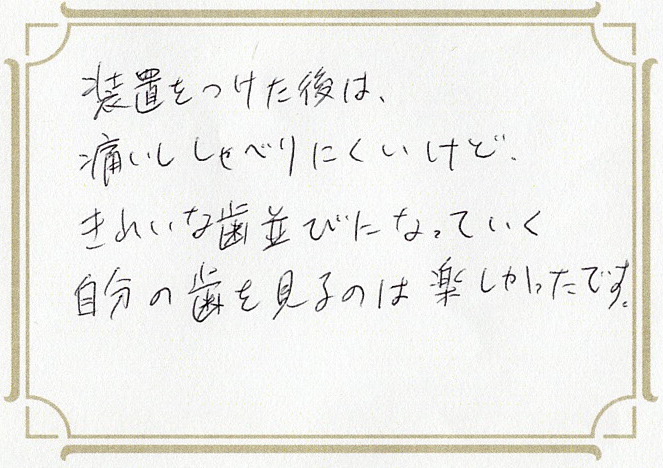 装置をつけた後は、
痛いししゃべりにくいけど、
きれいな歯並びになっていく
自分の歯を見るのは楽しかったです。